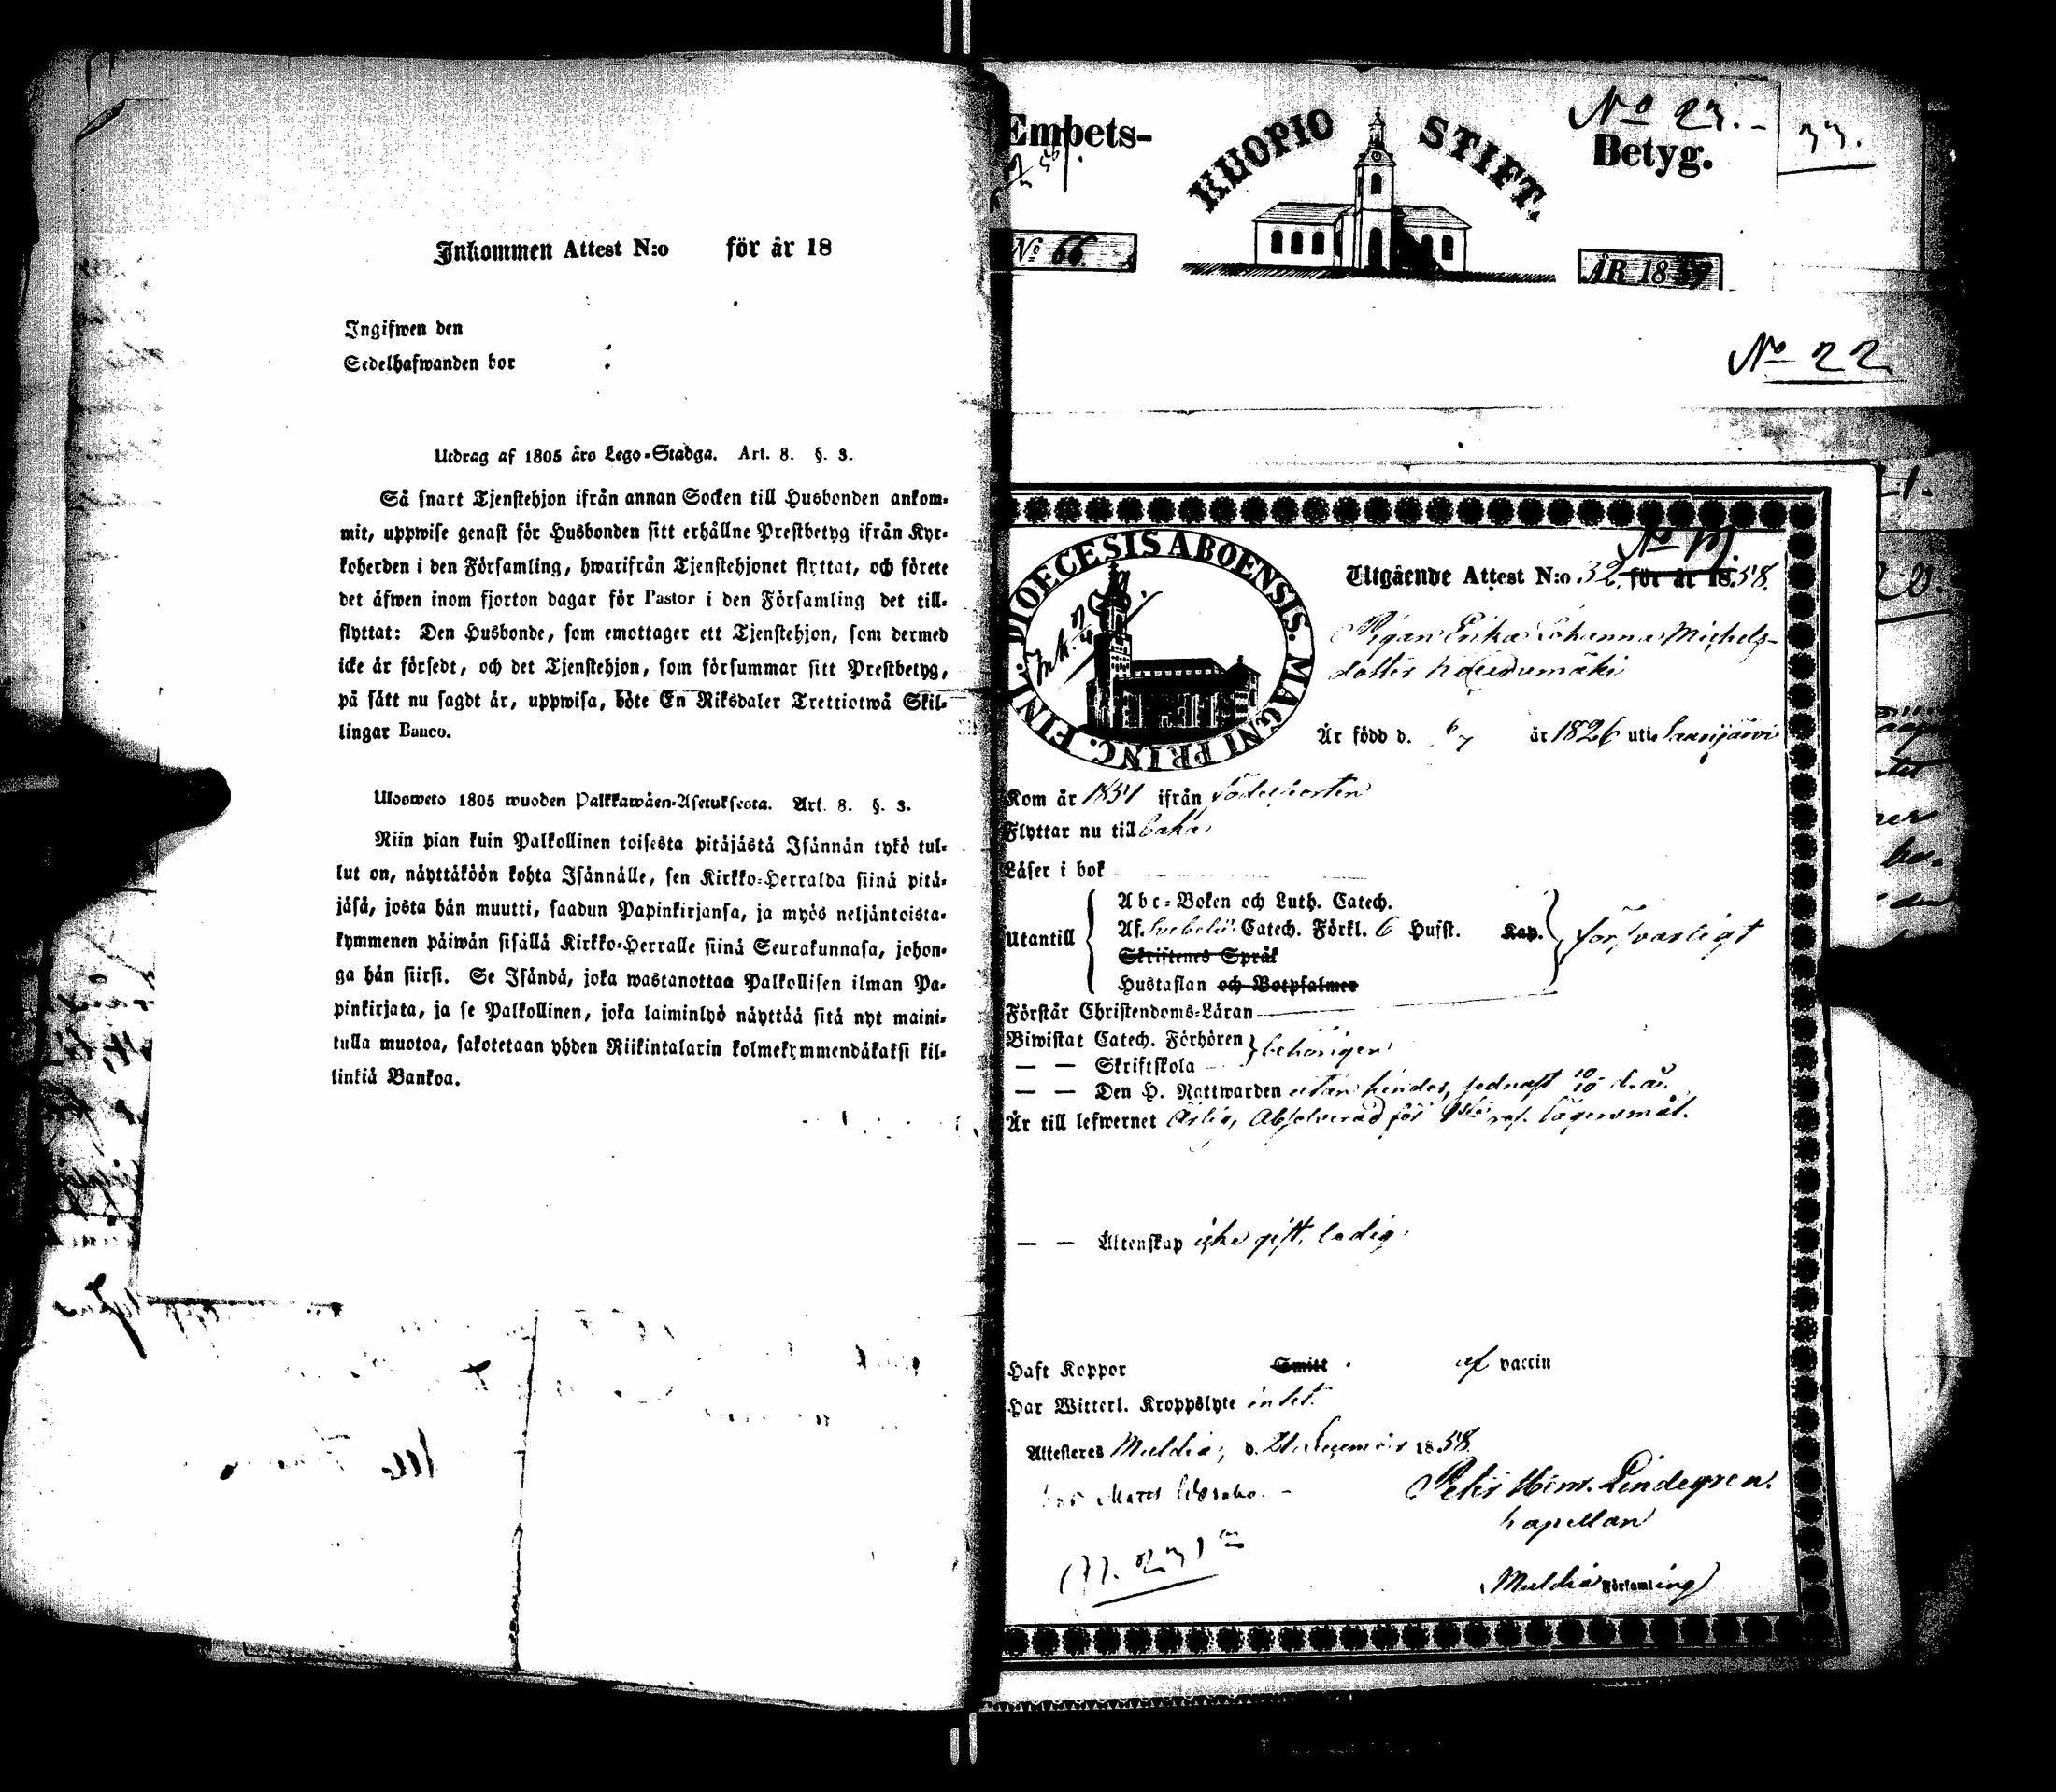 Inkommen Attest N:o för år 18
Ingifwen den
Sedelhafwanden bor
Utdrag af 1805 års Lego-Stadga. Art. 8. §. 3.
Så snart Tjenstehjon ifrån annan Socken till Husbonden ankom-
mit, uppwise genast för Husbonden sitt erhållne Prestbetyg ifrån Kyr-
koherden i den Församling, hwarifrån Tjenstehjonet flyttat, och förete
det äfwen inom fjorton dagar för Pastor i den Församling det till-
flyttat: Den Husbonde, som emottager ett Tjenstehjon, som dermed
icke är försedt, och det Tjenstehjon, som försummar sitt Prestbetyg,
på sätt nu sagdt är, uppwisa, böte En Riksdaler Trettiotwå Skil-
lingar Banco.
Ulosweto 1805 wuoden Palkkawäen-Asetuksesta. Art. 8. §. 3.
Niin pian kuin Palkollinen toisesta pitäjästä Isännän tykö tul-
lut on, näyttäköön kohta Isännälle, sen Kirkko-Herralda siinä pitä-
jäsä, josta hän muutti, saadun Papinkirjansa, ja myös neljäntoista-
kymmenen päiwän sisällä Kirkko-Herralle siinä Seurakunnasa, johon-
ga hän siirsi. Se Isändä, joka wastanottaa Palkollisen ilman Pa-
pinkirjata, ja se Palkollinen, joka laiminlyö näyttää sitä nyt maini-
tulla muotoa, sakotetaan yhden Riikintalarin kolmekymmendäkaksi kil-
linkiä Bankoa.
Embets-
KUOPIO STIFT.
No 27.
Betyg.
No 66.
ÅR 1857
No 22
DIOECESIS ABOENSIS. MAGNI PRINC. FINL.
Utgående Attest N:o 32 för år 1858.
Pigan Erika Johanna Michels-
dotter
Är född d. 6/7 år 1826 uti Saarijärvi
Kom år 1851 ifrån födelseorten
Flyttar nu till
Läser i bok
Utantill
Abc-Boken och Luth. Catech.
Af Svebelii Catech. Förkl. 6 Hufst. Kap.
Skriftenes Språk
Hustaflan och Botpsalmer
försvarligt
Förstår Christendoms-Läran
Biwistat Catech. Förhören
— — Skriftskola
behörigen
— — Den H. Nattwarden utan hinder, sednast 10/10 d. å.
Är till lefwernet Ärlig, Absolverad för 1sta resa lägersmål.
— — Äktenskap icke gift, ledig
Haft Koppor Smitt af vaccin
Har Witterl. Kroppslyte intet.
Attesteras Muldia, d. 21 December 1858.
Petter Henr. Lindegren.
Kapellan
Muldia Församling